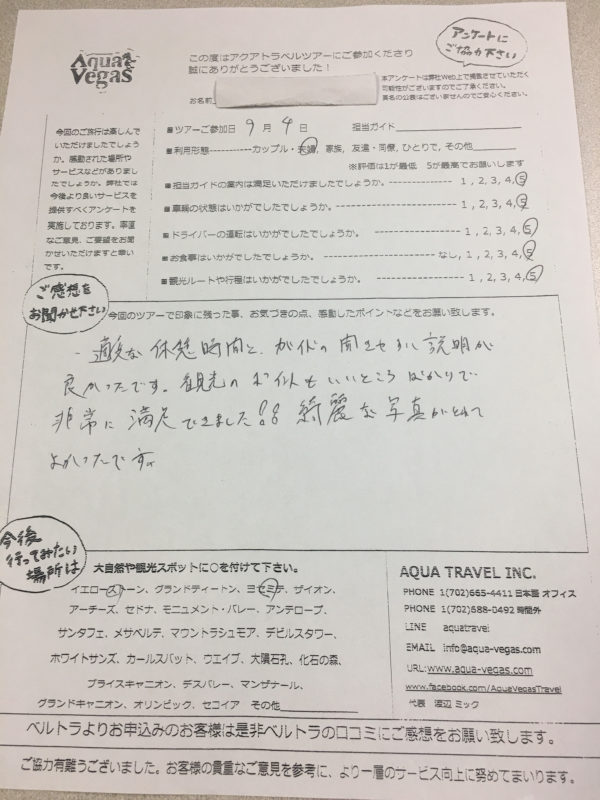 Aqua Vegas
この度はアクアトラベルツアーにご参加くださり
誠にありがとうございました！
アンケートに
ご協力下さい
本アンケートは弊社Web上で掲載させていただく
可能性がございますのでご了承ください。
実名の公表はございませんのでご安心ください。
お名前
今回のご旅行は楽しんで
いただけましたでしょう
か。感動された場所や
サービスなどがありまし
たでしょうか。弊社では
今後より良いサービスを
提供すべくアンケートを
実施しております。率直
なご意見、ご要望をお聞
かせいただけますと幸い
です。
■ツアーご参加日 9 月 4 日 担当ガイド
■利用形態------------カップル・夫婦、家族、友達・同僚、ひとりで、その他
※評価は1が最低 5が最高でお願いします
■担当ガイドの案内は満足いただけましたでしょうか。-------------- 1 , 2, 3, 4, 5
■車輌の状態はいかがでしたでしょうか。-------------- 1 , 2, 3, 4, 5
■ドライバーの運転はいかがでしたでしょうか。-------------- 1 , 2, 3, 4, 5
■お食事はいかがでしたでしょうか。-------------- なし, 1 , 2, 3, 4, 5
■観光ルートや行程はいかがでしたでしょうか。-------------- 1 , 2, 3, 4, 5
ご感想を
お聞かせ下さい
今回のツアーで印象に残った事、お気づきの点、感動したポイントなどをお願い致します。
・適度な休憩時間と、ガイドの聞きやすい説明が
良かったです。観光のポイントもいいところばかりで
非常に満足できました!! 綺麗な写真がとれて
よかったです。
今後
行ってみたい
場所は
大自然や観光スポットに○を付けて下さい。
イエローストーン、グランドティートン、ヨセミテ、ザイオン、
アーチーズ、セドナ、モニュメント・バレー、アンテロープ、
サンタフェ、メサベルデ、マウントラシュモア、デビルスタワー、
ホワイトサンズ、カールスバット、ウエイブ、大隕石孔、化石の森、
ブライスキャニオン、デスバレー、マンザナール、
グランドキャニオン、オリンピック、セコイア その他
AQUA TRAVEL INC.
PHONE 1(702)665-4411 日本語 オフィス
PHONE 1(702)688-0492 時間外
LINE aquatravel
EMAIL info@aqua-vegas.com
URL:www.aqua-vegas.com
www.facebook.com/AquaVegasTravel
代表 渡辺 ミック
ベルトラよりお申込みのお客様は是非ベルトラの口コミにご感想をお願い致します。
ご協力有難うございました。お客様の貴重なご意見を参考に、より一層のサービス向上に努めてまいります。